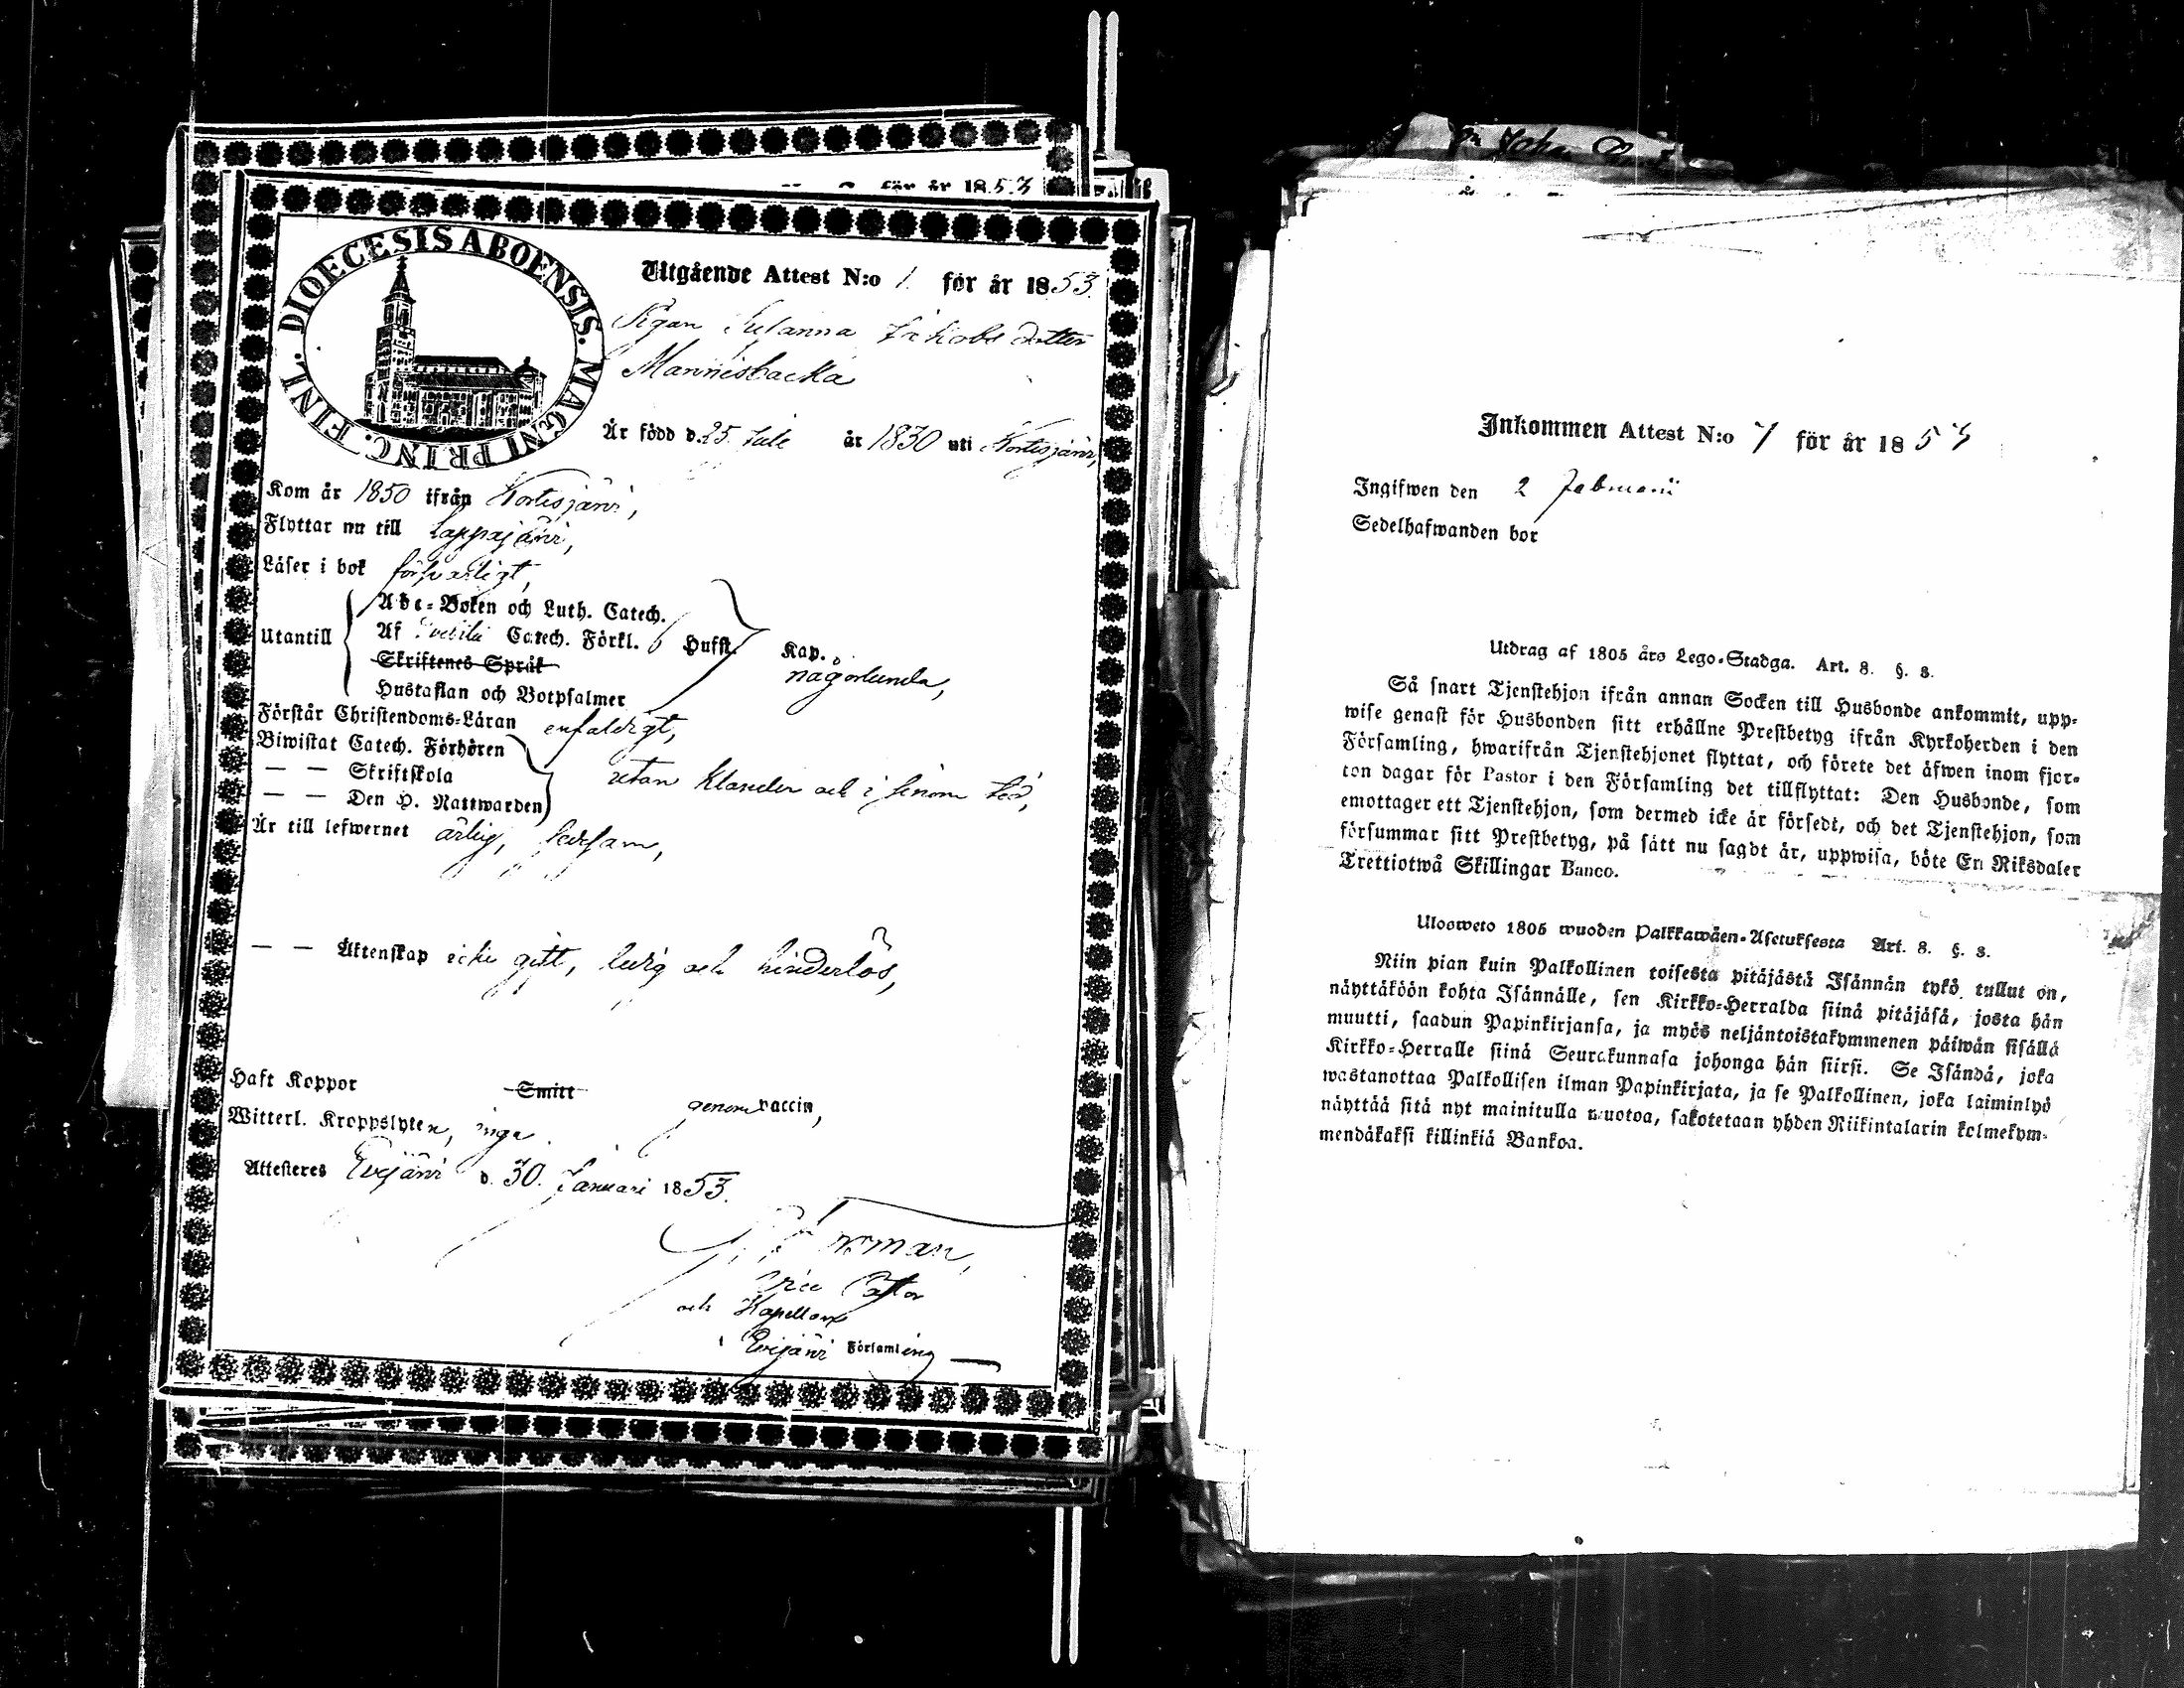 för år 1853
DIOECESIS ABOENSIS. MAGNI PRINC. FINL.
Utgående Attest N:o 1. för år 1853.
Pigan Susanna Jakobsdotter
Mannisbacka
Är född d. 25. Juli år 1830 uti Kortesjärvi,
Kom år 1850 ifrån Kortesjärvi,
Flyttar nu till Lappajärvi,
Läser i bok försvarligt,
Utantill
Abc-Boken och Luth. Catech.
Af Svebilii Catech. Förkl. 6 Hufst. Kap.
Skriftenes Språk
Hustaflan och Botpsalmer
någorlunda,
Förstår Christendoms-Läran enfaldigt,
Biwistat Catech. Förhören
— — Skriftskola
— — Den H. Nattwarden
utan klander och i sinom tid,
Är till lefwernet ärlig, sedesam,
— — Äktenskap icke gift, ledig och hinderlös,
Haft Koppor Smitt genom vaccin,
Witterl. Kroppslyten, inga.
Attesteres Evijärvi d. 30. Januari 1853.
Vice Pastor
och Kapellan
i Evijärvi Församling
Inkommen Attest N:o 7 för år 1853
Ingifwen den 2 Februarii
Sedelhafwanden bor
Utdrag af 1805 års Lego-Stadga. Art. 8. §. 3.
Så snart Tjenstehjon ifrån annan Socken till Husbonde ankommit, upp-
wise genast för Husbonden sitt erhållne Prestbetyg ifrån Kyrkoherden i den
Församling, hwarifrån Tjenstehjonet flyttat, och förete det äfwen inom fjor-
ton dagar för Pastor i den Församling det tillflyttat: Den Husbonde, som
emottager ett Tjenstehjon, som dermed icke är försedt, och det Tjenstehjon, som
försummar sitt Prestbetyg, på sätt nu sagdt är, uppwisa, böte En Riksdaler
Trettiotwå Skillingar Banco.
Ulosweto 1805 wuoden Palkkawäen-Asetuksesta Art. 8. §. 3.
Niin pian kuin Palkollinen toisesta pitäjästä Isännän tykö tullut on,
näyttäköön kohta Isännälle, sen Kirkko-Herralda siinä pitäjäsä, josta hän
muutti, saadun Papinkirjansa, ja myös neljäntoistakymmenen päiwän sisällä
Kirkko-Herralle siinä Seurakunnasa johonga hän siirsi. Se Isändä, joka
wastanottaa Palkollisen ilman Papinkirjata, ja se Palkollinen, joka laiminlyö
näyttää sitä nyt mainitulla muotoa, sakotetaan yhden Riikintalarin kolmekym-
mendäkaksi killinkiä Bankoa.